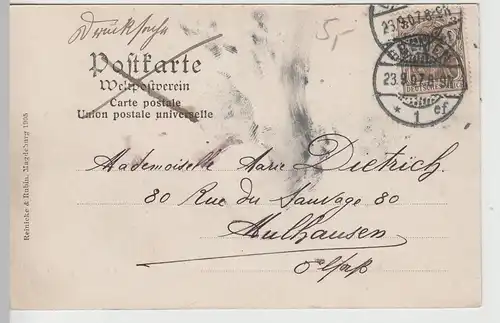 Drucksache
5,-
Postkarte
Weltpostverein
Carte postale
Union postale universelle
23.9.07.8-9N
BREMEN
23.9.07.8-9N
* 1 ef
DEUTSCHES REICH
Mademoiselle Marie Dietrich.
80 Rue du Sauvage 80
Mulhausen
Elsaß
Reinicke & Rubin, Magdeburg 1905